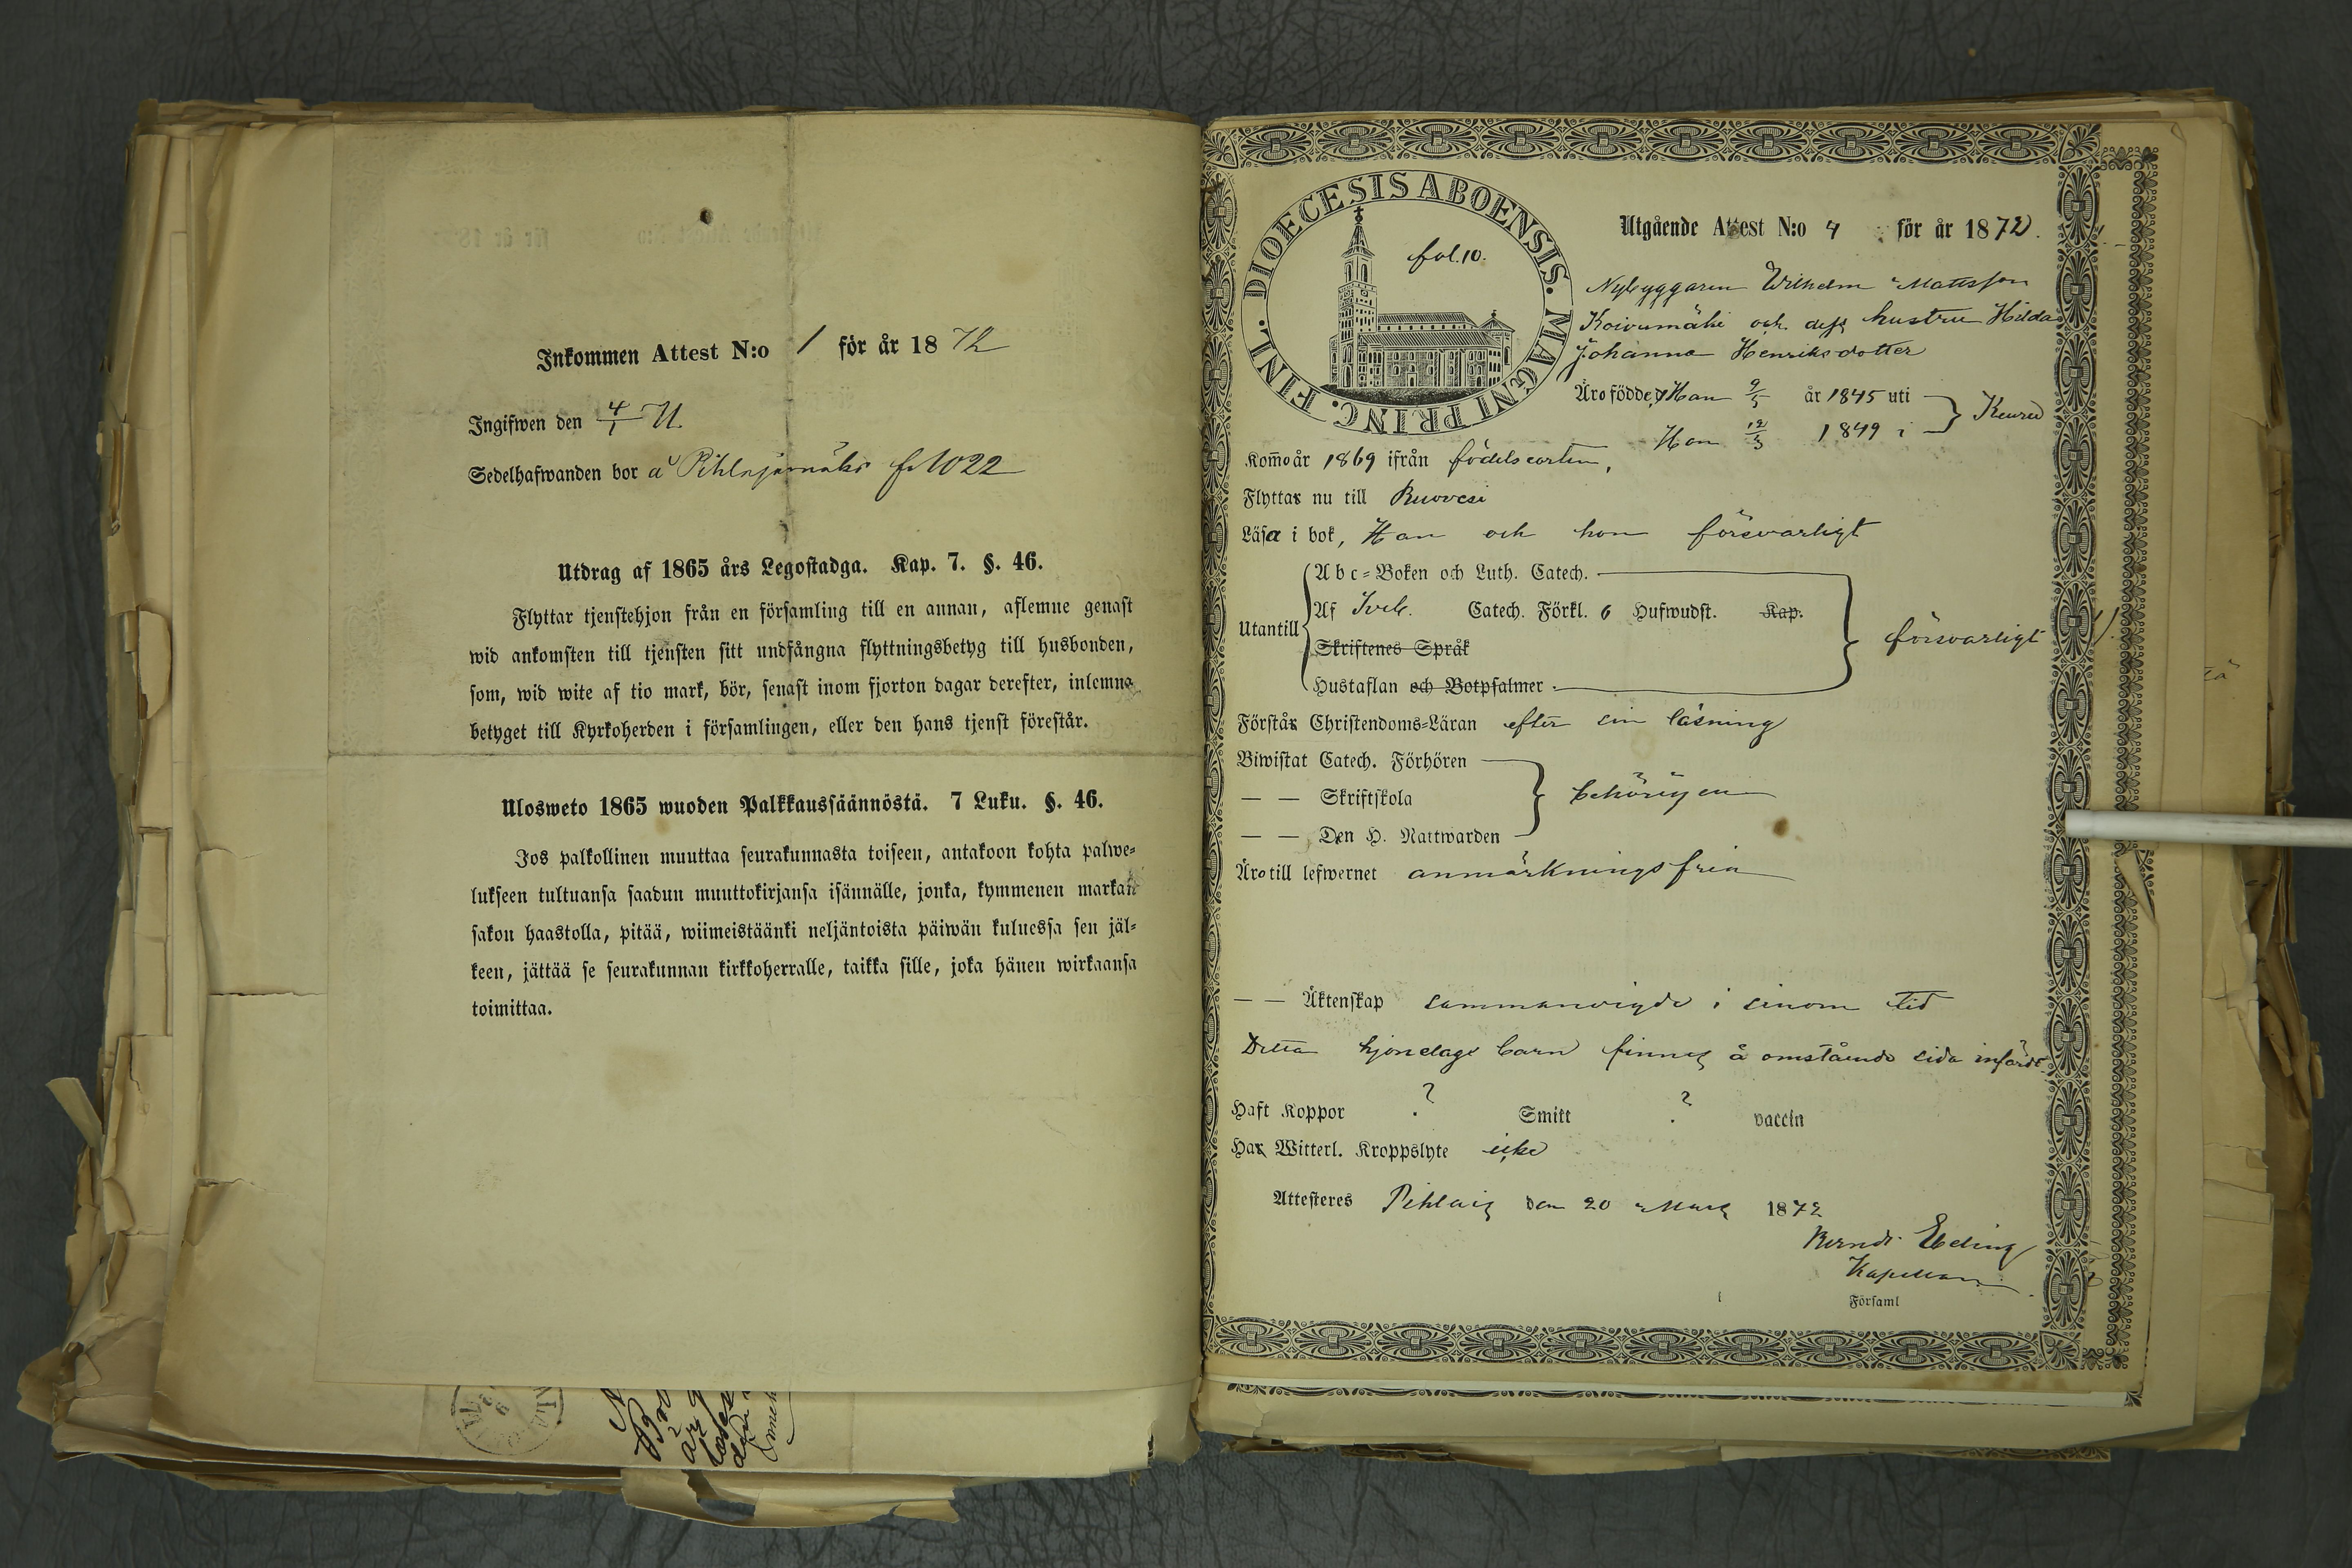 Inkommen Attest N:o 1 för år 1872
Ingifwen den 4/1 72.
Sedelhafwanden bor å Pihlajamäki f. 1022
Utdrag af 1865 års Legostadga. Kap. 7. §. 46.
Flyttar tjenstehjon från en församling till en annan, aflemne genast
wid ankomsten till tjensten sitt undfångna flyttningsbetyg till husbonden,
som, wid wite af tio mark, bör, senast inom fjorton dagar derefter, inlemna
betyget till Kyrkoherden i församlingen, eller den hans tjenst förestår.
Ulosweto 1865 wuoden Palkkaussäännöstä. 7 Luku. §. 46.
Jos palkollinen muuttaa seurakunnasta toiseen, antakoon kohta palwe-
lukseen tultuansa saadun muuttokirjansa isännälle, jonka, kymmenen markan
sakon haastolla, pitää, wiimeistäänki neljäntoista päiwän kuluessa sen jäl-
keen, jättää se seurakunnan kirkkoherralle, taikka sille, joka hänen wirkaansa
toimittaa.
DIOECESIS ABOENSIS. MAGNI PRINC. FINL.
fol. 10.
Utgående Attest N:o 4 för år 1872.
Nybyggaren Wilhelm Mattsson
Koivumäki och dess hustru Hilda
Johanna Henriksdotter
Äro födde, Han 9/5 år 1845 uti
Hon 12/3 1849 i } Keuru
Kommo år 1869 ifrån födelseorten,
Flyttar nu till Ruovesi
Läsa i bok, Han och hon försvarligt
Utantill
Abc-Boken och Luth. Catech.
Af Sveb. Catech. Förkl. 6 Hufwudst. Kap.
Skriftenes Språk
Hustaflan och Botpsalmer
försvarligt
Förstår Christendoms-Läran efter sin läsning
Biwistat Catech. Förhören
— — Skriftskola
— — Den H. Nattwarden
behörigen
Äro till lefwernet anmärkningsfria
— — Äktenskap sammanvigde i sinom tid
Detta hjonelags barn finnes å omstående sida införde
Haft Koppor ? Smitt ? vaccin
Har Witterl. Kroppslyte icke
Attesteres Pihlais den 20 Mars 1872
Berndt
Kapellan
Församl